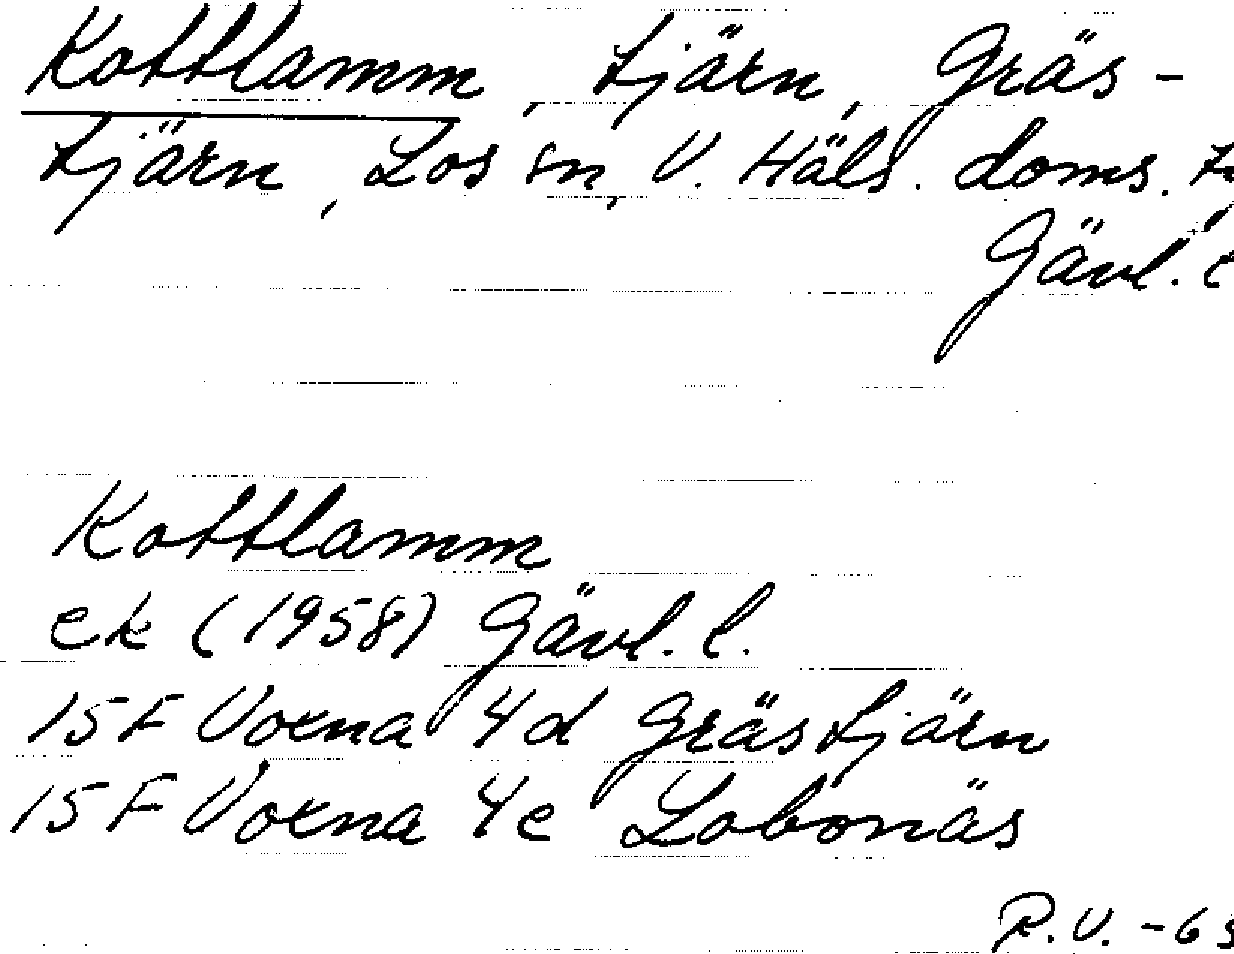 Kottlamm, tjärn, Gräs-
tjärn, Los sn, V. Häls. doms.
Gävl. l
Kottlamm
ek (1958) Gävl. l.
15F Voxna 4d Grästjärn
15F Voxna 4e Lobonäs
R.V. -65